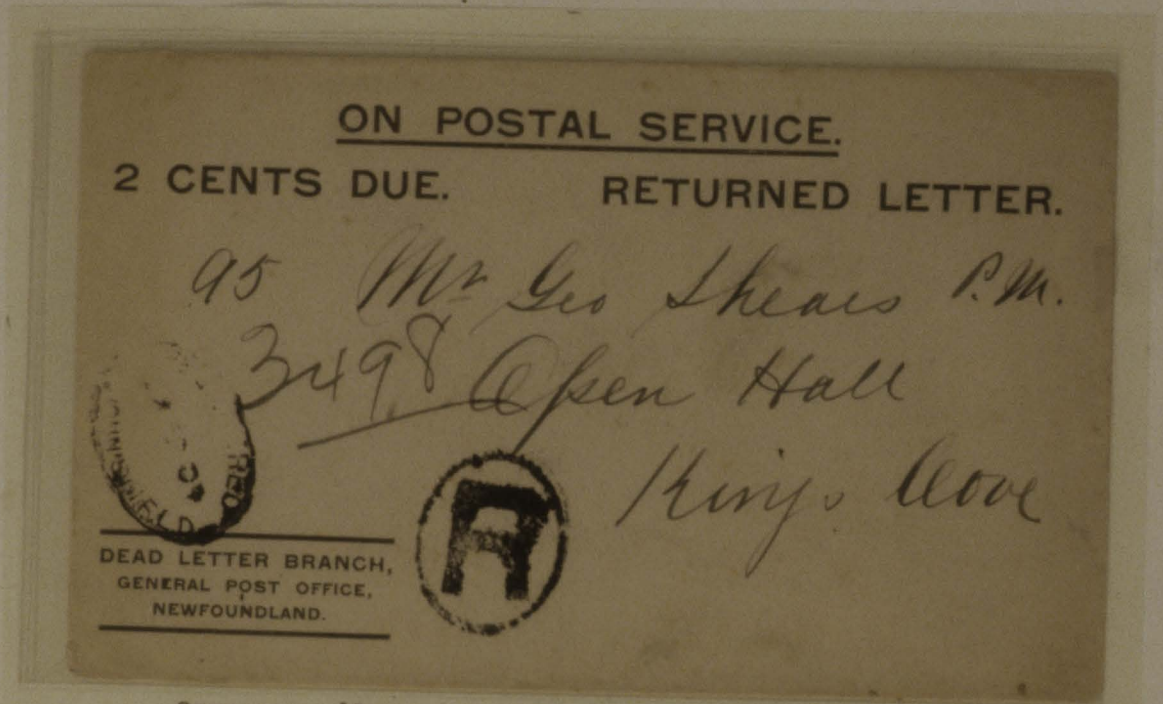 ON POSTAL SERVICE.
2 CENTS DUE. RETURNED LETTER.
95 Mr Geo Shears P.M.
3498 Open Hall
Kings Cove
R
DEAD LETTER BRANCH,
GENERAL POST OFFICE,
NEWFOUNDLAND.